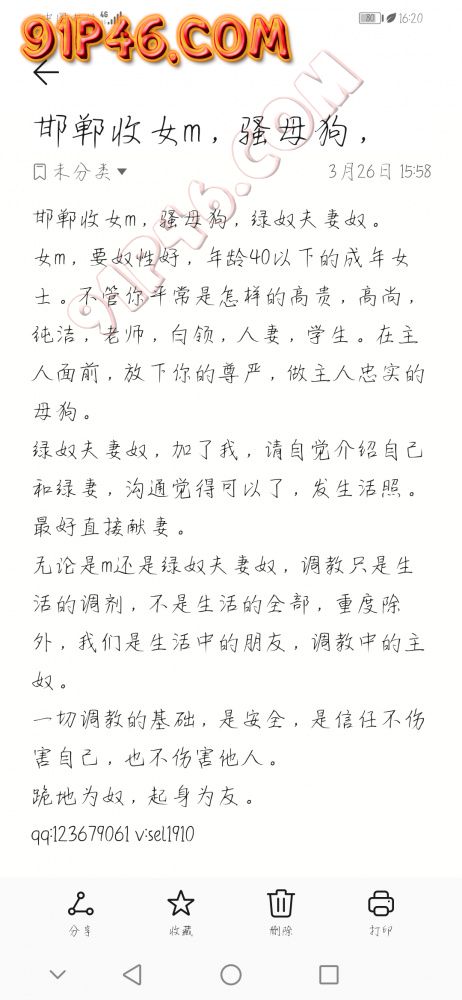 16:20
91P46.COM
邯郸收女m，骚母狗，
未分类
3月26日 15:58
91P46.COM
邯郸收女m，骚母狗，绿奴夫妻奴。
女m，要奴性好，年龄40以下的成年女
士。不管你平常是怎样的高贵，高尚，
纯洁，老师，白领，人妻，学生。在主
人面前，放下你的尊严，做主人忠实的
母狗。
绿奴夫妻奴，加了我，请自觉介绍自己
和绿妻，沟通觉得可以了，发生活照。
最好直接献妻。
无论是m还是绿奴夫妻奴，调教只是生
活的调剂，不是生活的全部，重度除
外，我们是生活中的朋友，调教中的主
奴。
一切调教的基础，是安全，是信任不伤
害自己，也不伤害他人。
跪地为奴，起身为友。
qq:123679061 v:sel1910
分享
收藏
删除
打印